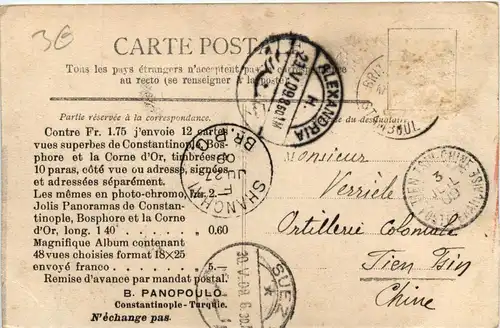 3€
CARTE POSTALE
Tous les pays étrangers n'acceptent pas la
au recto (se renseigner à la poste)
Partie réservée à la correspondance.
du destinataire
Contre Fr. 1.75 j'envoie 12 cartes
vues superbes de Constantinople Bos-
phore et la Corne d'Or, timbrées
10 paras, côté vue ou adresse, signées
et adressées séparément.
Les mêmes en photo-chromo, frs. 2.-
Jolis Panoramas de Constan-
tinople, Bosphore et la Corne
d'Or, long. 1 40 . . 0.60
Magnifique Album contenant
48 vues choisies format 18×25
envoyé franco . . . 5.-
Remise d'avance par mandat postal.
B. PANOPOULO
Constantinople - Turquie.
N'échange pas.
ALEXANDRIA
SHANGHAI
BR. P.O.
SUEZ
TIEN-TSIN-CHINE
Monsieur
Verrièle
Artillerie Coloniale
Tien Tsin
Chine